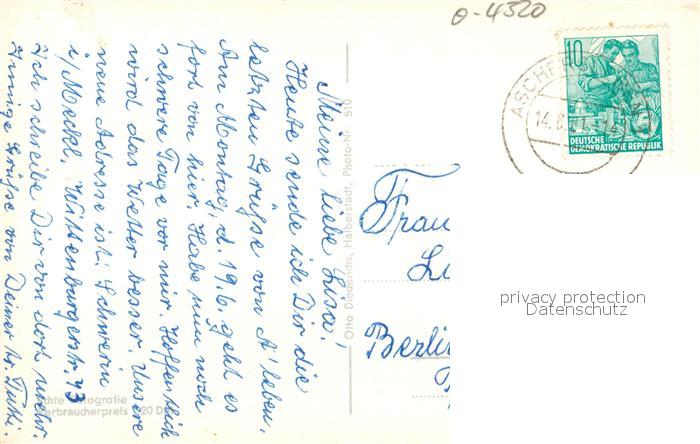 Meine liebe Lisa!
Heute sende ich Dir die
letzten Grüße von A'leben.
Am Montag, d. 19.6. geht es
fort von hier. Habe nun noch
schwere Tage vor mir. Hoffentlich
wird das Wetter besser. Unsere
neue Adresse ist: Schwerin
i/Meckl. Wittenburgerstr. 43
Ich schreibe Dir von dort mehr.
Innige Grüße von Deiner
Otto Diederichs, Halberstadt, Photo-Nr. 510
Echte Fotografie
Verbraucherpreis
0-4320
10
DEUTSCHE
DEMOKRATISCHE REPUBLIK
Frau
Berlin
privacy protection
Datenschutz